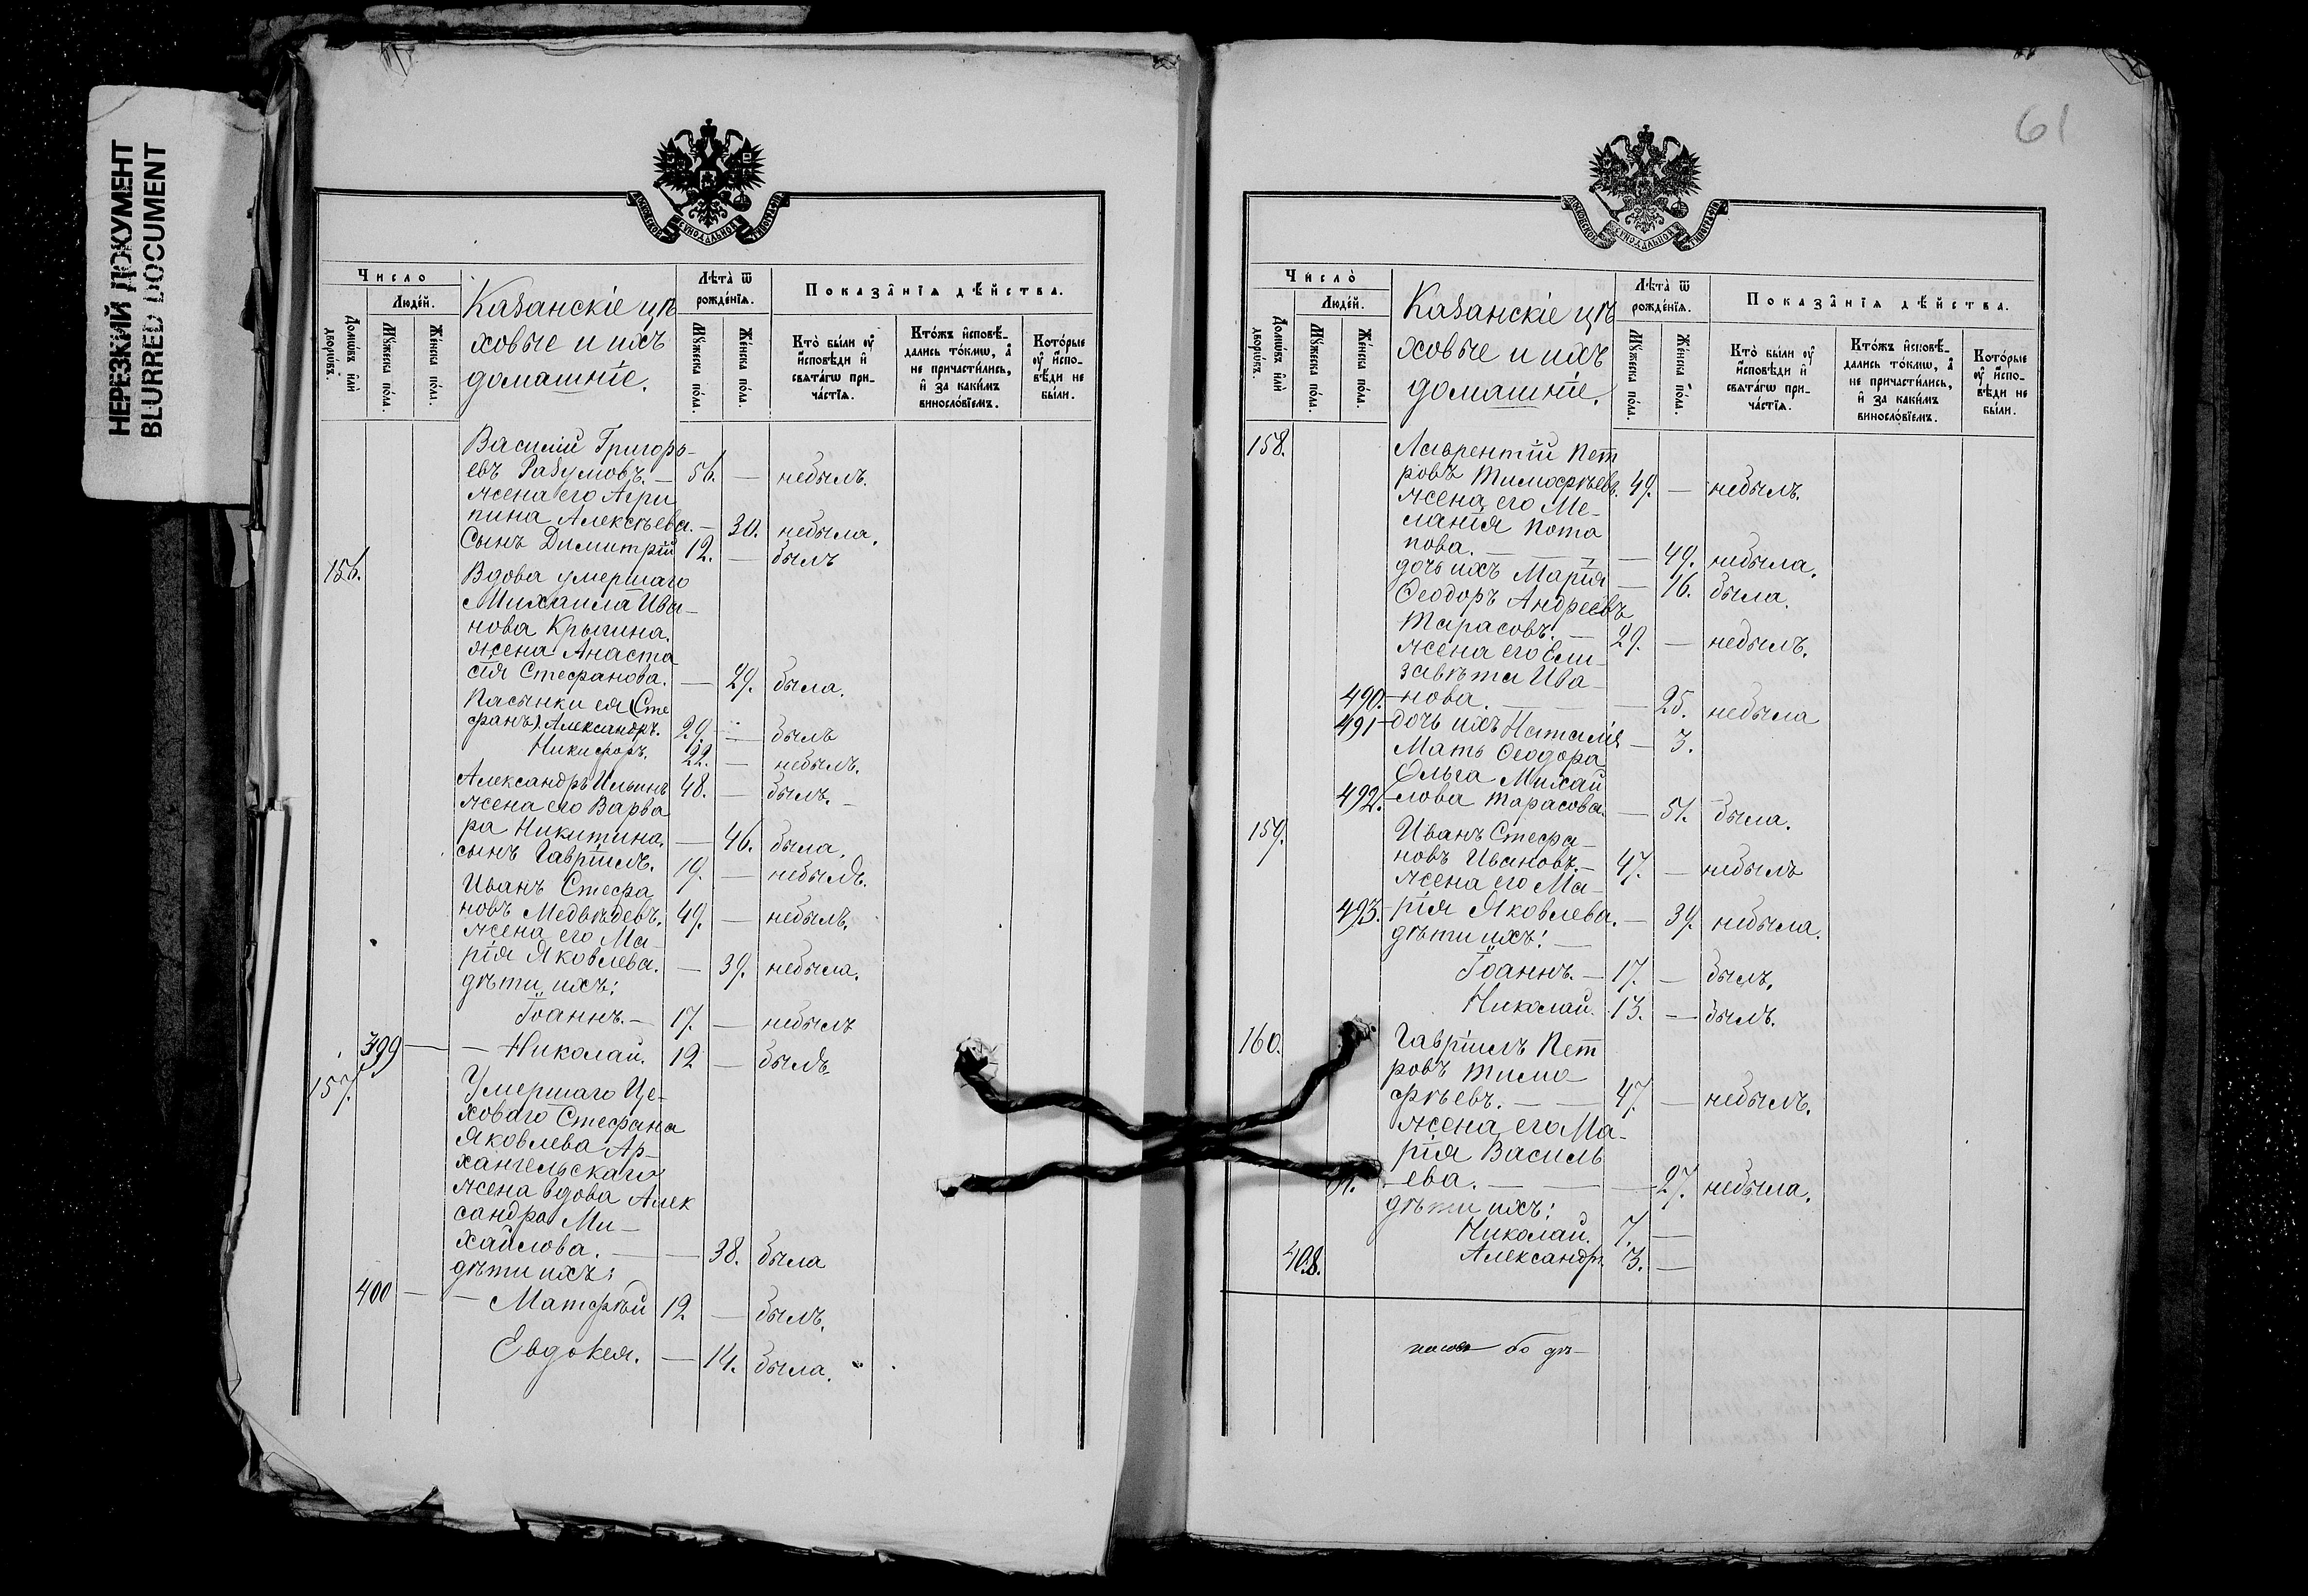 НЕРЕЗКИЙ ДОКУМЕНТ
BLURRED DOCUMENT
МОСКОВСКОЙ СѴНОДАЛЬНОЙ ТИПОГРАФІИ
Число
Людей.
Домѡвъ или дворѡвъ.
Мꙋжеска пола.
Женска пола.
Казанскіе цѣ
ховые и ихъ
домашніе.
Лѣта ѿ рожденїѧ.
Мꙋжеска пола.
Женска пола.
Показанїѧ дѣйства.
Кто были ѹ исповѣди и свѧтагѡ причастїѧ.
Ктожъ исповѣдались токмѡ, а не причастились, и за какимъ винословїемъ.
Которые ѹ исповѣди не были.
Василій Григорь-
евъ Разумовъ. — 56. — небылъ.
жена его Агри
пина Алексѣева. — 30. небыла.
Сынъ Димитрій 12. — былъ
156. Вдова умершаго
Михаила Ива-
нова Крылина.
жена Анаста
сія Стефанова. — 29. была.
Пасынки ея (Сте
фанъ). Александръ. 29. — былъ
Никифоръ. 22. — небылъ.
Александръ Ильинъ 48. — былъ. —
жена его Варва
ра Никитина. — 46. была.
сынъ Гавріилъ. 19. — небылъ.
Иванъ Стефа
новъ Медвѣдевъ. 49. — небылъ.
жена его Ма-
рія Яковлева. — 39. небыла.
дѣти ихъ:
Іоаннъ. — 17. — небылъ
399 — — Николай. 12 — былъ.
157. Умершаго Це-
ховаго Стефана
Яковлева Ар-
хангельскаго
жена вдова Алек
сандра Ми-
хайлова. — — 38. была
дѣти ихъ:
400 — — Матфѣй 12 — былъ.
Евдокея. — 14. была.
61
МОСКОВСКОЙ СѴНОДАЛЬНОЙ ТИПОГРАФІИ
Число
Людей.
Домѡвъ или дворѡвъ.
Мꙋжеска пола.
Женска пола.
Казанскіе цѣ
ховые и ихъ
домашніе.
Лѣта ѿ рожденїѧ.
Мꙋжеска пола.
Женска пола.
Показанїѧ дѣйства.
Кто были ѹ исповѣди и свѧтагѡ причастїѧ.
Ктожъ исповѣдались токмѡ, а не причастились, и за какимъ винословїемъ.
Которые ѹ исповѣди не были.
158. Лаврентій Пет
ровъ Тимофѣевъ. 49. — небылъ.
жена его Ме-
ланія Пота
пова. — — — 49. небыла.
дочь ихъ Марія — 16. была.
Ѳеодоръ Андреевъ
Тарасовъ. — 29. — небылъ.
жена его Ели-
завѣта Ива-
490. — нова. — — 25. небыла
491 — дочь ихъ Наталія — 3.
Мать Ѳеодора
Ольга Михай
492. — лова Тарасова. — 51. была.
159. Иванъ Стефа-
новъ Ивановъ. — 47. — небылъ
жена его Ма-
493. — рія Яковлева. — 39. небыла.
дѣти ихъ: —
Іоаннъ. — 17. — былъ.
Николай. 13. — былъ.
160. Гавріилъ Пет
ровъ Тимо-
фѣевъ. — — 47. — небылъ.
жена его Ма-
рія Василь
— ева. — — — 27. небыла.
дѣти ихъ:
Николай. 7. —
408. Александръ. 3. —